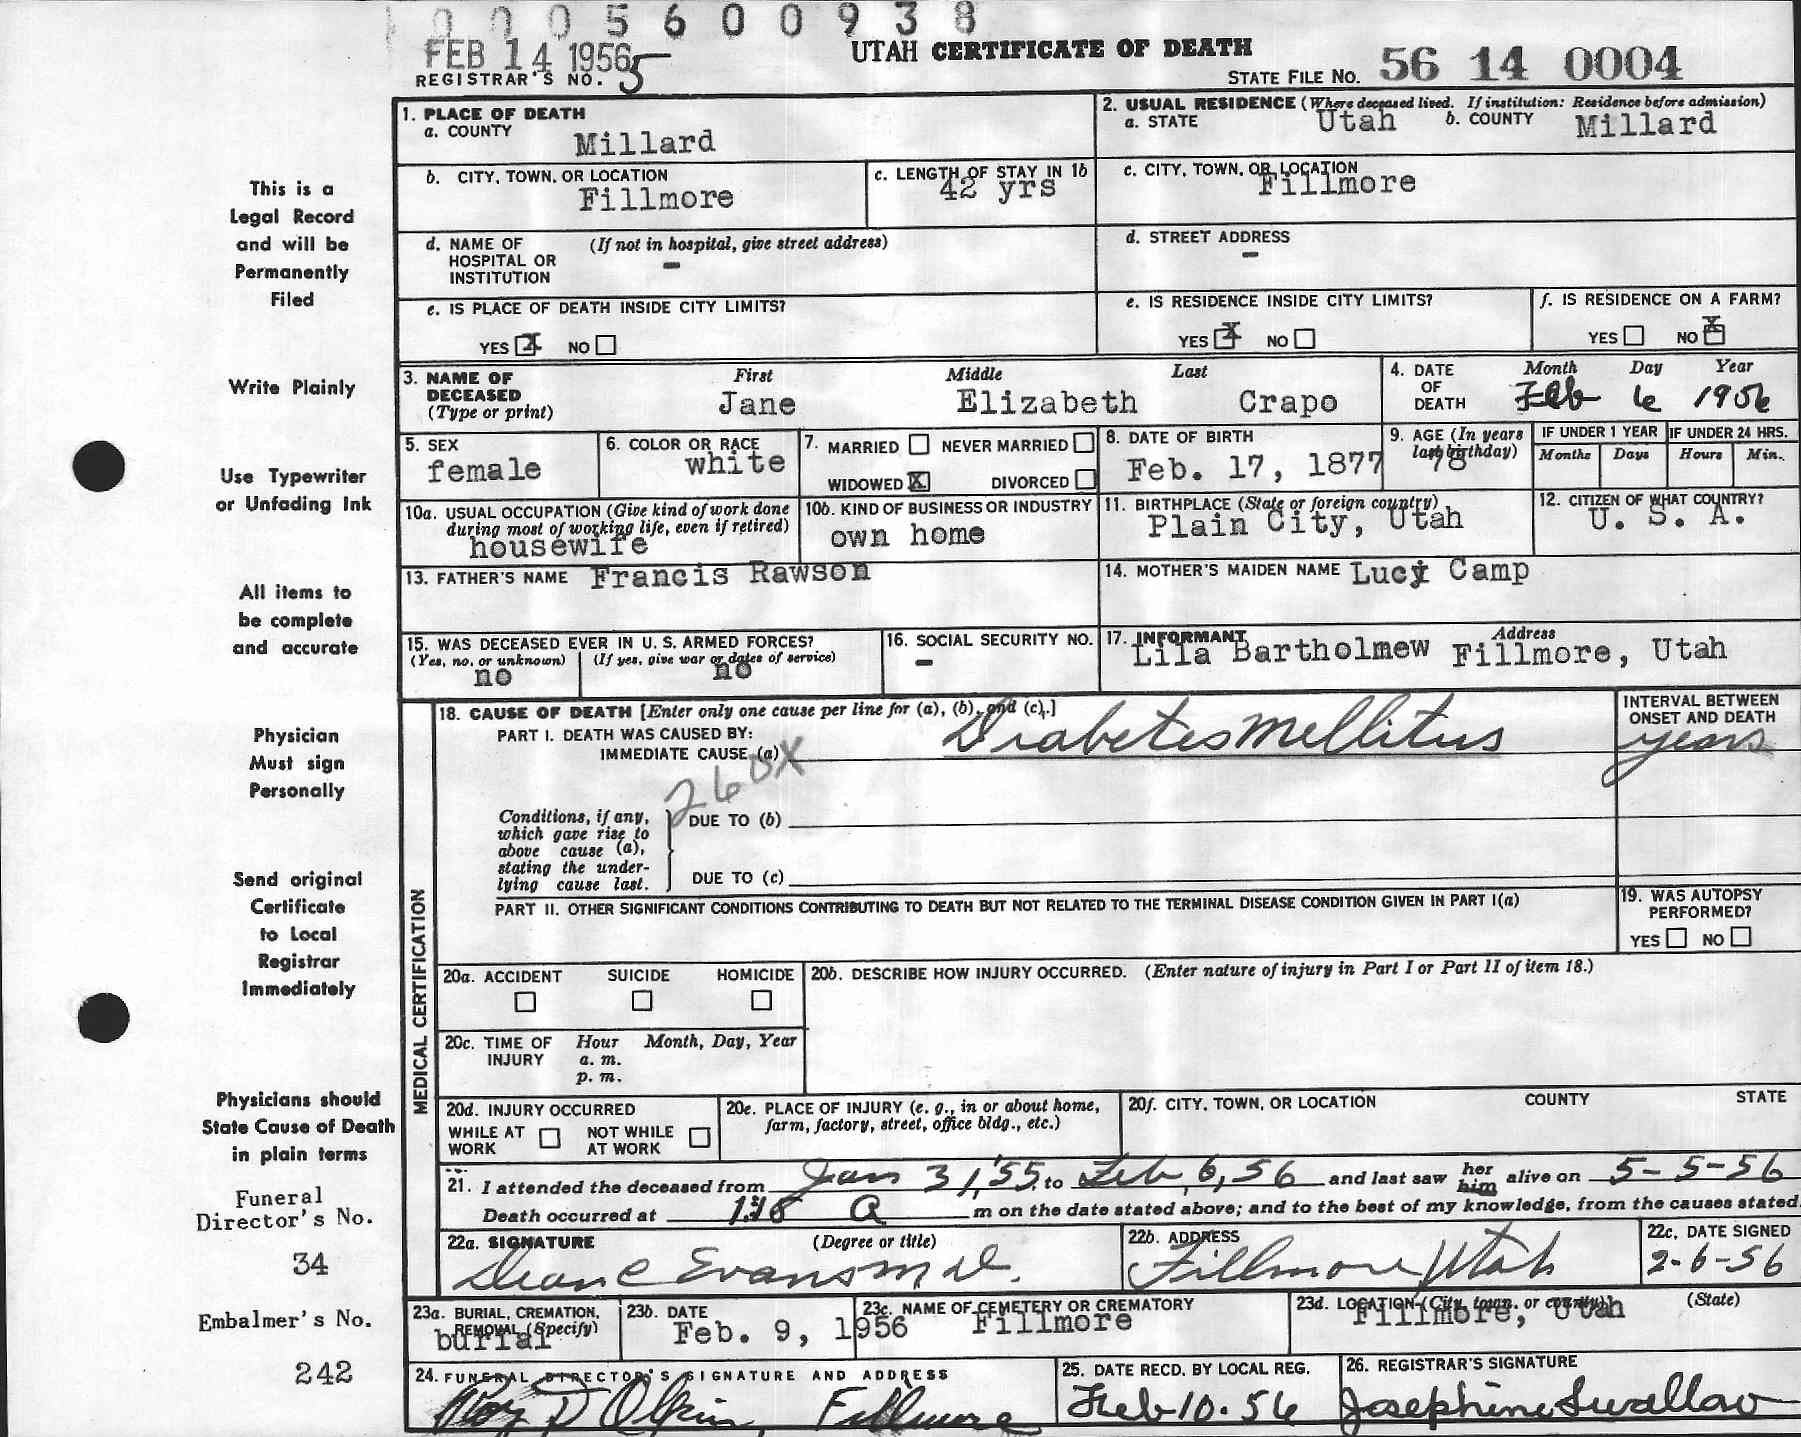 0005600938
FEB 14 1956
REGISTRAR'S NO. 5
UTAH CERTIFICATE OF DEATH
STATE FILE NO. 56 14 0004
This is a
Legal Record
and will be
Permanently
Filed
Write Plainly
Use Typewriter
or Unfading Ink
All items to
be complete
and accurate
Physician
Must sign
Personally
Send original
Certificate
to Local
Registrar
Immediately
Physicians should
State Cause of Death
in plain terms
Funeral
Director's No.
34
Embalmer's No.
242
1. PLACE OF DEATH
a. COUNTY
Millard
2. USUAL RESIDENCE (Where deceased lived. If institution: Residence before admission)
a. STATE Utah b. COUNTY Millard
b. CITY, TOWN, OR LOCATION
Fillmore
c. LENGTH OF STAY IN 1b
42 yrs
c. CITY, TOWN, OR LOCATION
Fillmore
d. NAME OF (If not in hospital, give street address)
HOSPITAL OR
INSTITUTION
-
d. STREET ADDRESS
-
e. IS PLACE OF DEATH INSIDE CITY LIMITS?
YES X NO
e. IS RESIDENCE INSIDE CITY LIMITS?
YES X NO
f. IS RESIDENCE ON A FARM?
YES NO X
3. NAME OF
DECEASED
(Type or print)
First Middle Last
Jane Elizabeth Crapo
4. DATE
OF
DEATH
Month Day Year
Feb 6 1956
5. SEX
female
6. COLOR OR RACE
white
7. MARRIED NEVER MARRIED
WIDOWED X DIVORCED
8. DATE OF BIRTH
Feb. 17, 1877
9. AGE (In years
last birthday)
78
IF UNDER 1 YEAR
Months Days
IF UNDER 24 HRS.
Hours Min.
10a. USUAL OCCUPATION (Give kind of work done
during most of working life, even if retired)
housewife
10b. KIND OF BUSINESS OR INDUSTRY
own home
11. BIRTHPLACE (State or foreign country)
Plain City, Utah
12. CITIZEN OF WHAT COUNTRY?
U. S. A.
13. FATHER'S NAME Francis Rawson
14. MOTHER'S MAIDEN NAME Lucy Camp
15. WAS DECEASED EVER IN U. S. ARMED FORCES?
(Yes, no, or unknown) (If yes, give war or dates of service)
no no
16. SOCIAL SECURITY NO.
-
17. INFORMANT Address
Lila Bartholmew Fillmore, Utah
MEDICAL CERTIFICATION
18. CAUSE OF DEATH [Enter only one cause per line for (a), (b), and (c).]
PART I. DEATH WAS CAUSED BY:
IMMEDIATE CAUSE (a) Diabetes Mellitus
260X
INTERVAL BETWEEN
ONSET AND DEATH
years
Conditions, if any,
which gave rise to
above cause (a),
stating the under-
lying cause last.
DUE TO (b)
DUE TO (c)
PART II. OTHER SIGNIFICANT CONDITIONS CONTRIBUTING TO DEATH BUT NOT RELATED TO THE TERMINAL DISEASE CONDITION GIVEN IN PART I(a)
19. WAS AUTOPSY
PERFORMED?
YES NO
20a. ACCIDENT SUICIDE HOMICIDE
20b. DESCRIBE HOW INJURY OCCURRED. (Enter nature of injury in Part I or Part II of item 18.)
20c. TIME OF Hour Month, Day, Year
INJURY a. m.
p. m.
20d. INJURY OCCURRED
WHILE AT NOT WHILE
WORK AT WORK
20e. PLACE OF INJURY (e. g., in or about home,
farm, factory, street, office bldg., etc.)
20f. CITY, TOWN, OR LOCATION COUNTY STATE
21. I attended the deceased from Jan 31, '55, to Feb, 6, 56 and last saw her him alive on 5-5-56
Death occurred at 1:18 A m on the date stated above; and to the best of my knowledge, from the causes stated.
22a. SIGNATURE (Degree or title)
Dean C Evans M D.
22b. ADDRESS
Fillmore, Utah
22c. DATE SIGNED
2-6-56
23a. BURIAL, CREMATION,
REMOVAL (Specify)
burial
23b. DATE
Feb. 9, 1956
23c. NAME OF CEMETERY OR CREMATORY
Fillmore
23d. LOCATION (City, town, or county) (State)
Fillmore, Utah
24. FUNERAL DIRECTOR'S SIGNATURE AND ADDRESS
Roy D Olpin, Fillmore
25. DATE RECD. BY LOCAL REG.
Feb 10. 56
26. REGISTRAR'S SIGNATURE
Josephine Swallow